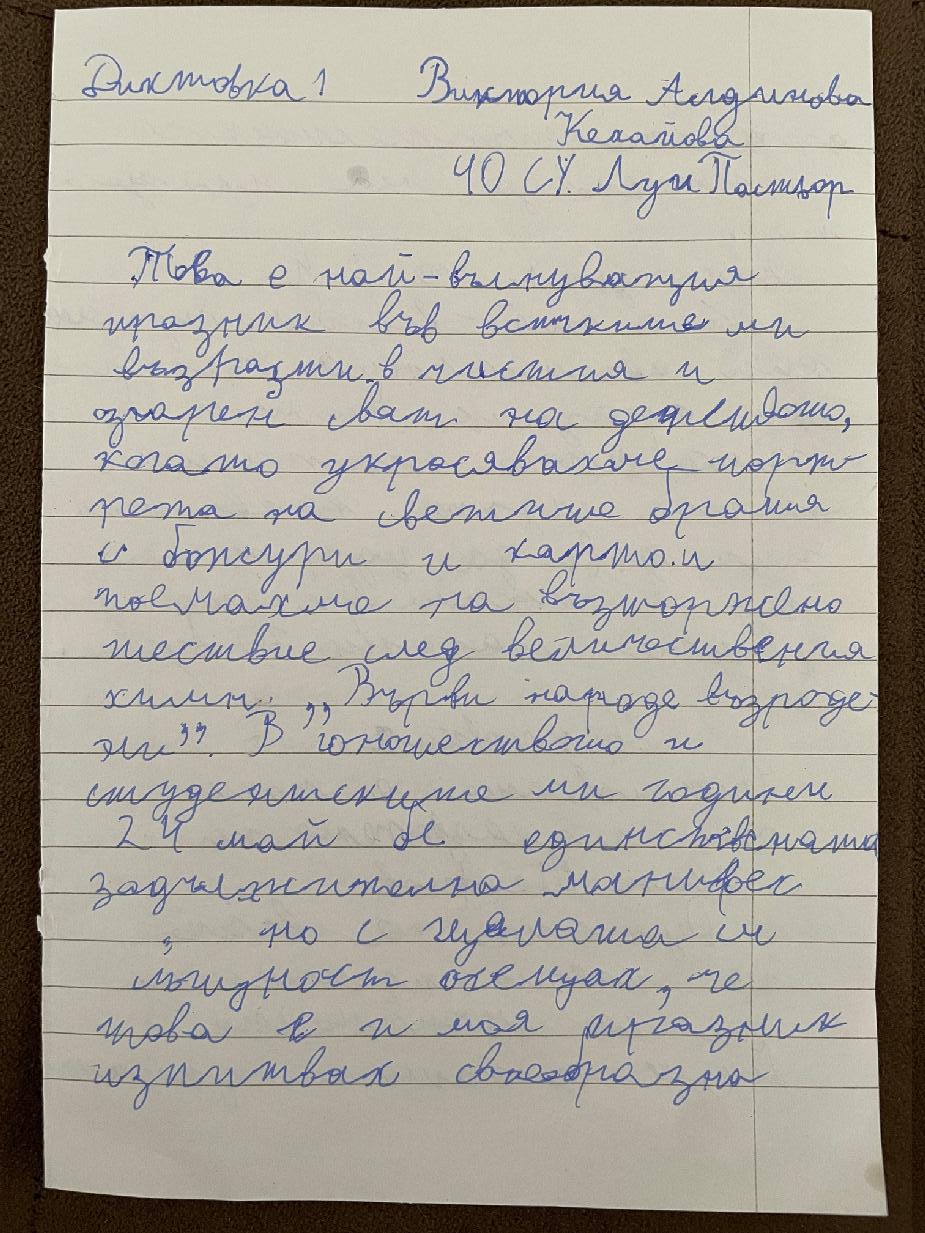 Диктовка 1 Виктория Алдинова
Кехайова
40 СУ. Луи Пастьор
Това е най-вълнуващия
празник във всичките ми
възрасти. в чистия и
озарен свят на детството,
когато украсявахме порт-
рета на светите братя
с божури и хартии
поемахме на възторжено
шествие след величествения
химн. „Върви народе възроде-
ни”. В юношеството и
студентските ми години
24 май бе единствената
задължителна манифес
, но с цялата си
същност осещах, че
това е и моя празник
изпитвах своеобразна